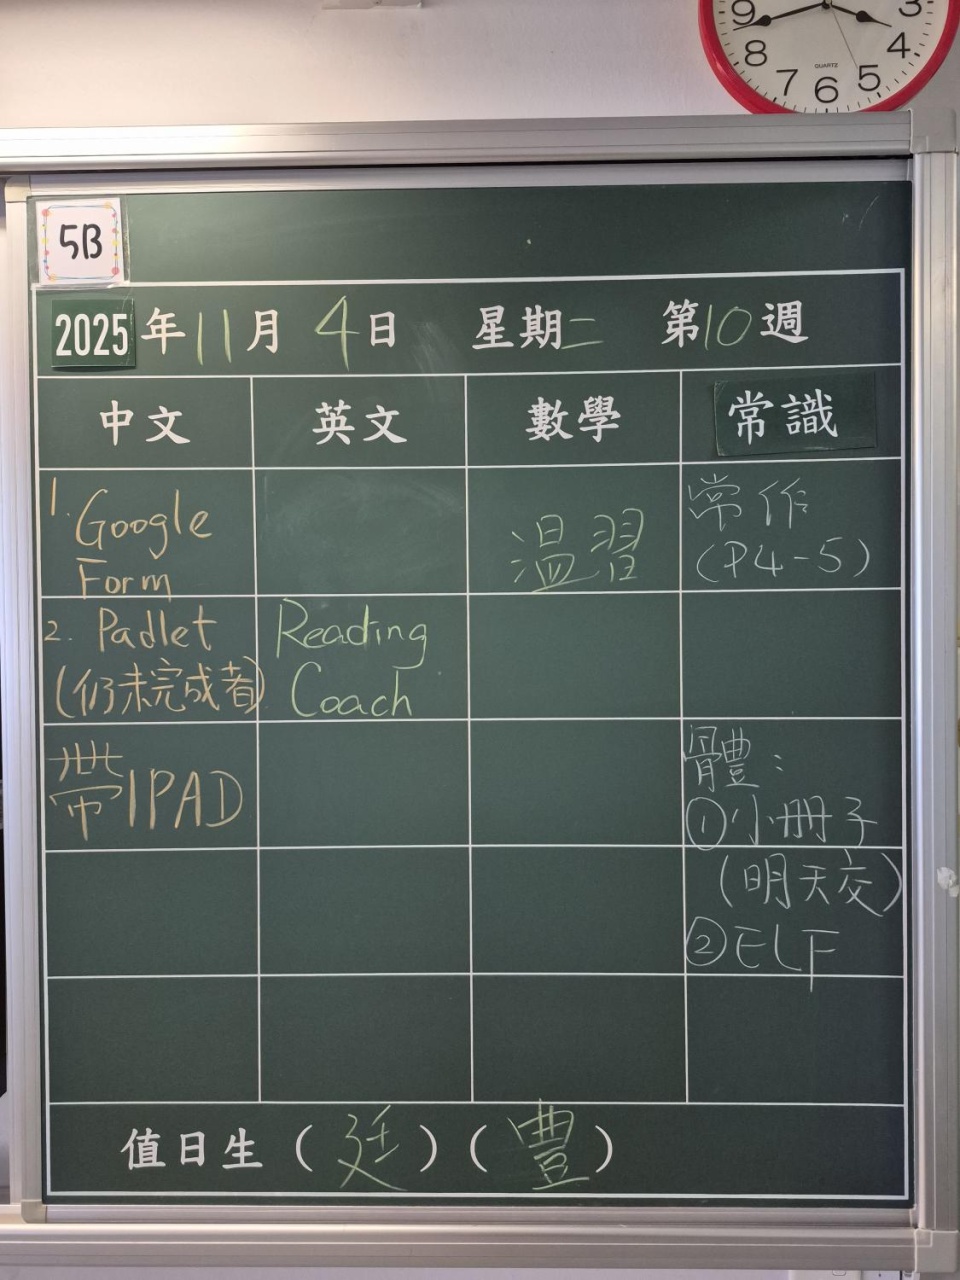 9
3
8
4
7
6
5
QUARTZ
5B
2025年11月4日 星期二 第10週
中文 英文 數學 常識
1. Google
Form
溫習
常作
(P4-5)
2. Padlet
(仍未完成者)
Reading
Coach
帶IPAD
體：
①小冊子
(明天交)
②ELF
值日生（廷）（豊）